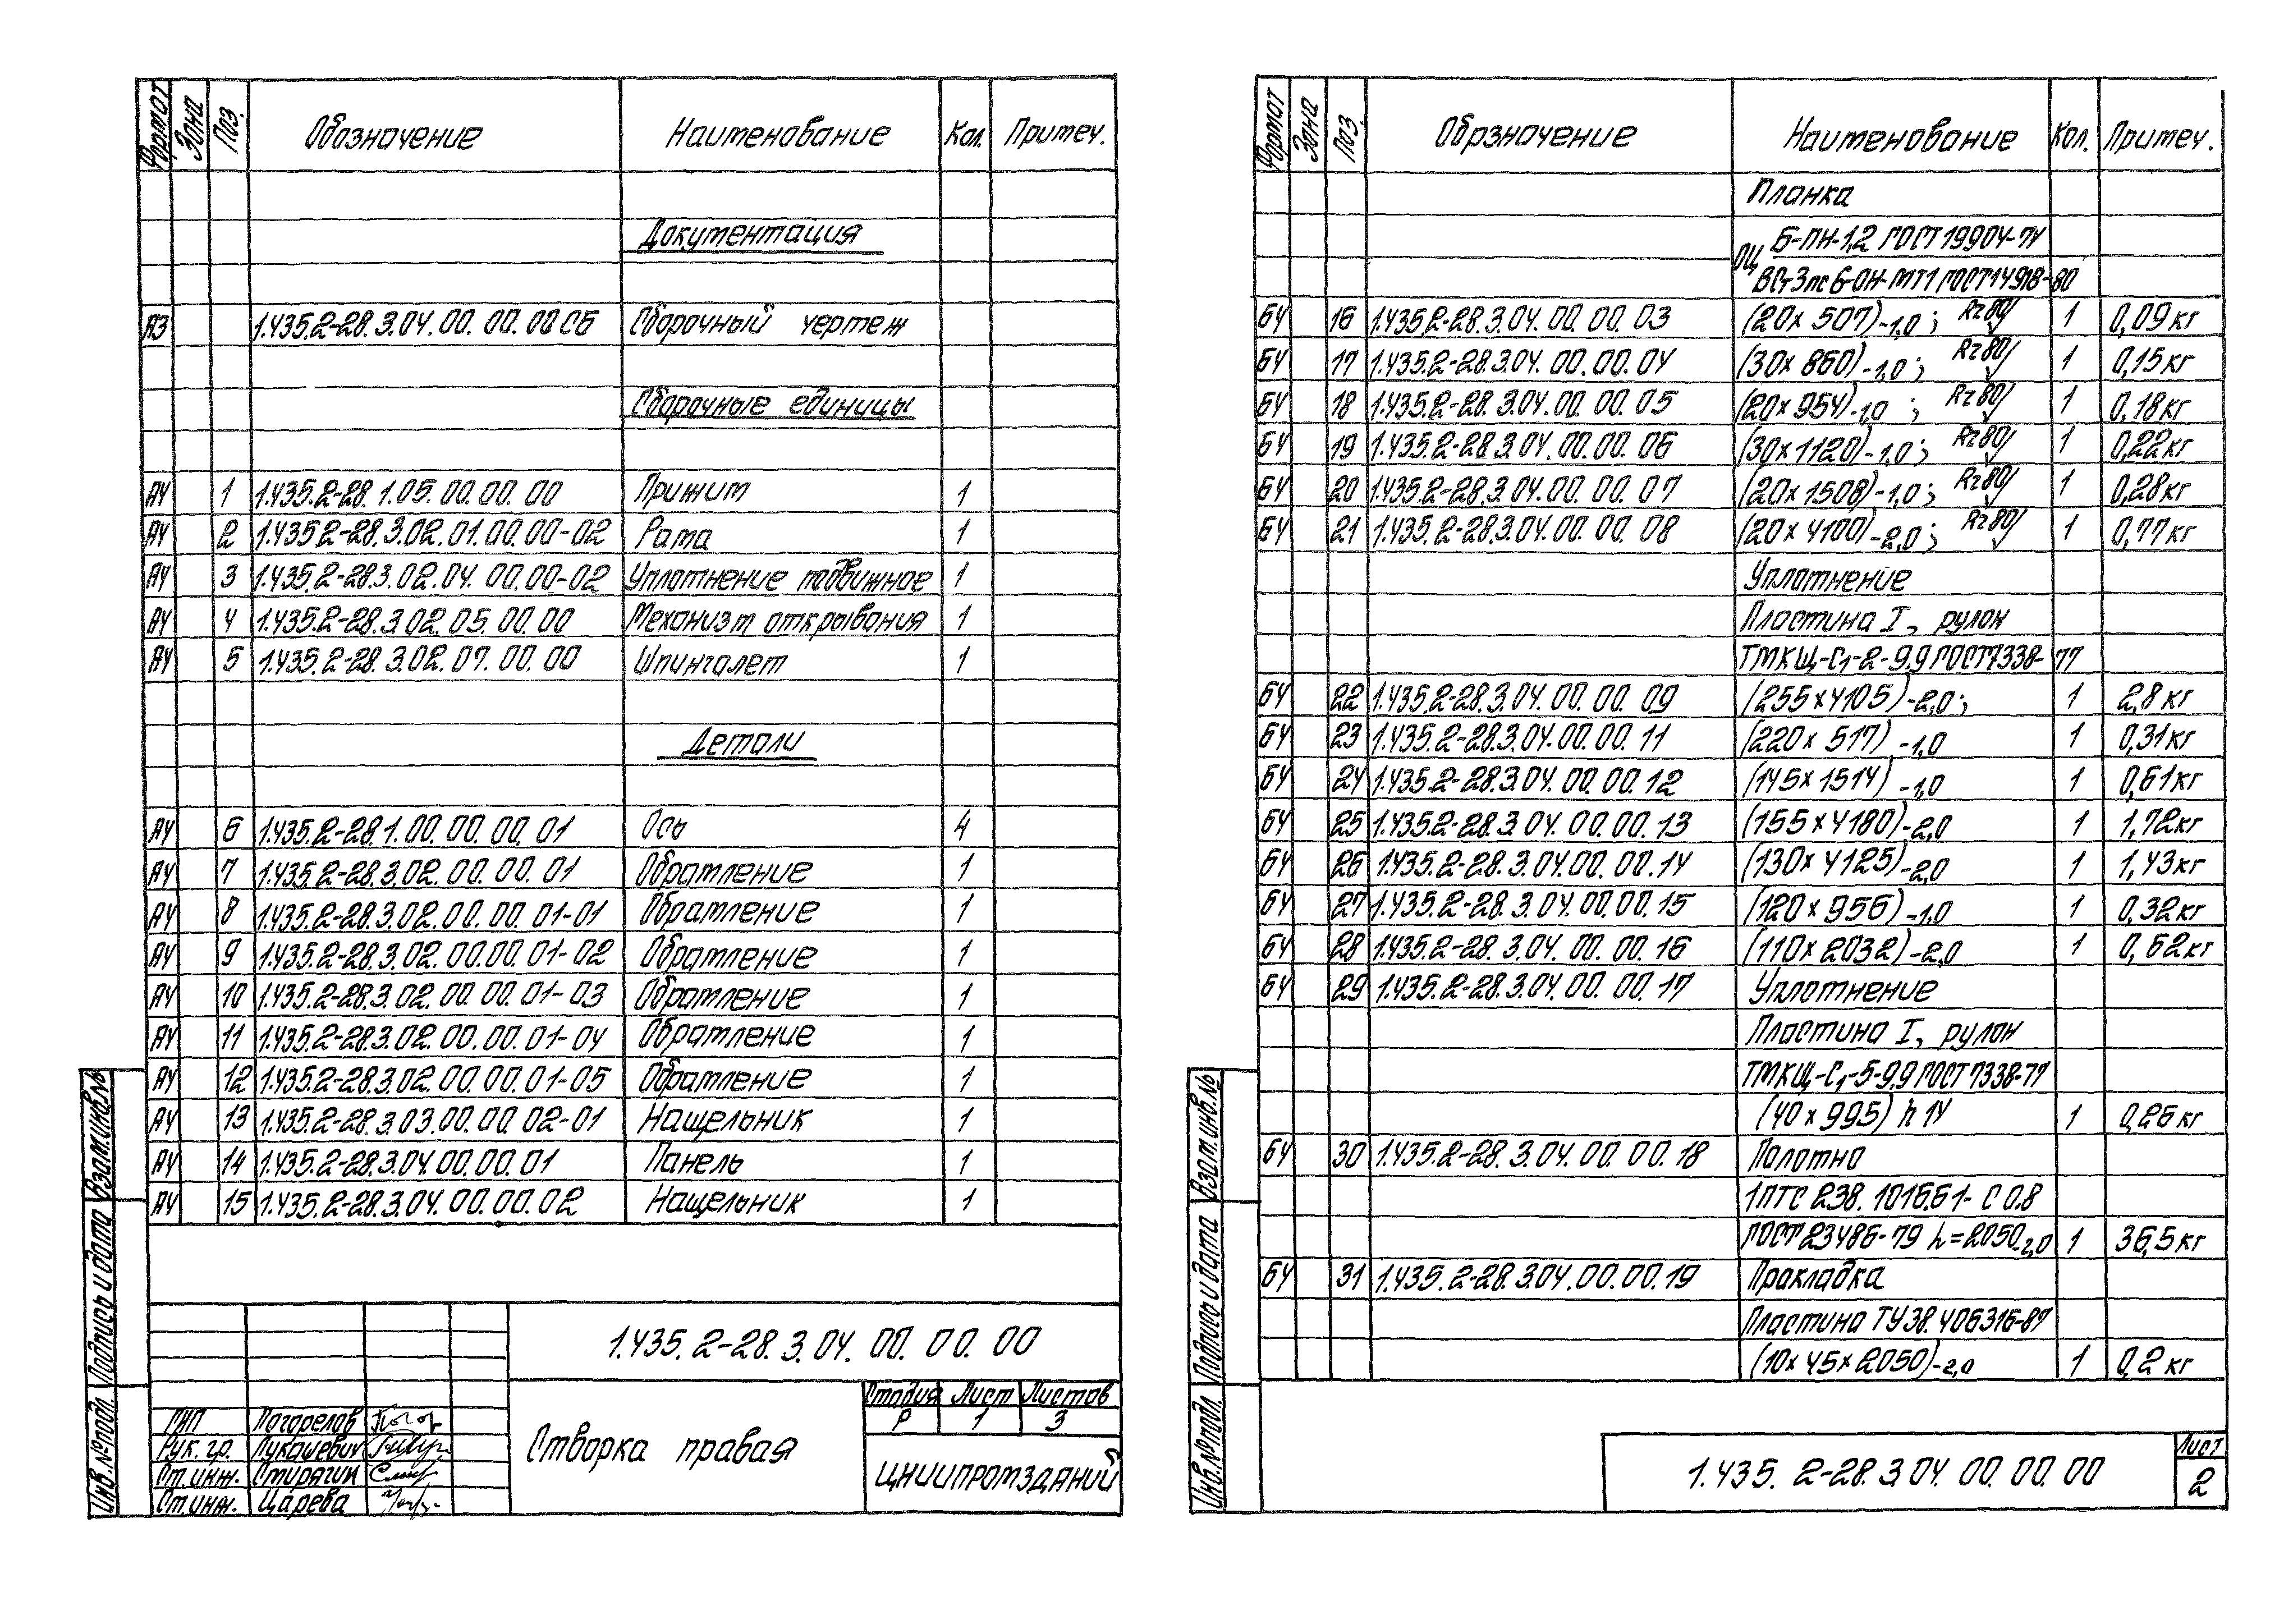 Формат Зона Поз. Обозначение Наименование Кол. Примеч.
Документация
А3 1.435.2-28.3.04.00.00.00 СБ Сборочный чертеж
Сборочные единицы
А4 1 1.435.2-28.1.05.00.00.00 Прижим 1
А4 2 1.435.2-28.3.02.01.00.00-02 Рама 1
А4 3 1.435.2-28.3.02.04.00.00-02 Уплотнение подвижное 1
А4 4 1.435.2-28.3.02.05.00.00 Механизм открывания 1
А4 5 1.435.2-28.3.02.07.00.00 Шпингалет 1
Детали
А4 6 1.435.2-28.1.00.00.00.01 Ось 4
А4 7 1.435.2-28.3.02.00.00.01 Обрамление 1
А4 8 1.435.2-28.3.02.00.00.01-01 Обрамление 1
А4 9 1.435.2-28.3.02.00.00.01-02 Обрамление 1
А4 10 1.435.2-28.3.02.00.00.01-03 Обрамление 1
А4 11 1.435.2-28.3.02.00.00.01-04 Обрамление 1
А4 12 1.435.2-28.3.02.00.00.01-05 Обрамление 1
А4 13 1.435.2-28.3.03.00.00.02-01 Нащельник 1
А4 14 1.435.2-28.3.04.00.00.01 Панель 1
А4 15 1.435.2-28.3.04.00.00.02 Нащельник 1
Взам.инв.№
Подпись и дата
Инв.№ подл.
1.435.2-28.3.04.00.00.00
Створка правая
Стадия Лист Листов
Р 1 3
ЦНИИПРОМЗДАНИЙ
ГИП Погорелов
Рук. гр. Лукашевич
Ст.инж. Смирягин
Ст.инж. Царева
Формат Зона Поз. Обозначение Наименование Кол. Примеч.
Планка
ОЦ Б-ПН-1,2 ГОСТ 19904-74
ВСт3пс6-ОН-МТ1 ГОСТ14918-80
БЧ 16 1.435.2-28.3.04.00.00.03 (20х507)-1,0; Rz80 1 0,09кг
БЧ 17 1.435.2-28.3.04.00.00.04 (30х860)-1,0; Rz80 1 0,15кг
БЧ 18 1.435.2-28.3.04.00.00.05 (20х954)-1,0; Rz80 1 0,18кг
БЧ 19 1.435.2-28.3.04.00.00.06 (30х1120)-1,0; Rz80 1 0,22кг
БЧ 20 1.435.2-28.3.04.00.00.07 (20х1508)-1,0; Rz80 1 0,28кг
БЧ 21 1.435.2-28.3.04.00.00.08 (20х4100)-2,0; Rz80 1 0,77кг
Уплотнение
Пластина I, рулон
ТМКЩ-С1-2-9,9 ГОСТ7338-77
БЧ 22 1.435.2-28.3.04.00.00.09 (255х4105)-2,0; 1 2,8кг
БЧ 23 1.435.2-28.3.04.00.00.11 (220х517)-1,0 1 0,31кг
БЧ 24 1.435.2-28.3.04.00.00.12 (145х1514)-1,0 1 0,61кг
БЧ 25 1.435.2-28.3.04.00.00.13 (155х4180)-2,0 1 1,72кг
БЧ 26 1.435.2-28.3.04.00.00.14 (130х4125)-2,0 1 1,43кг
БЧ 27 1.435.2-28.3.04.00.00.15 (120х956)-1,0 1 0,32кг
БЧ 28 1.435.2-28.3.04.00.00.16 (110х2032)-2,0 1 0,62кг
БЧ 29 1.435.2-28.3.04.00.00.17 Уплотнение
Пластина I, рулон
ТМКЩ-С1-5-9,9 ГОСТ 7338-77
(40х995) h14 1 0,26кг
БЧ 30 1.435.2-28.3.04.00.00.18 Полотно
1ПТС 238.1016Б1-С 0.8
ГОСТ23486-79 L=2050-2,0 1 36,5кг
БЧ 31 1.435.2-28.3.04.00.00.19 Прокладка
Пластина ТУ38.406316-87
(10х45х2050)-2,0 1 0,2кг
Взам.инв.№
Подпись и дата
Инв.№ подл.
1.435.2-28.3.04.00.00.00
Лист
2